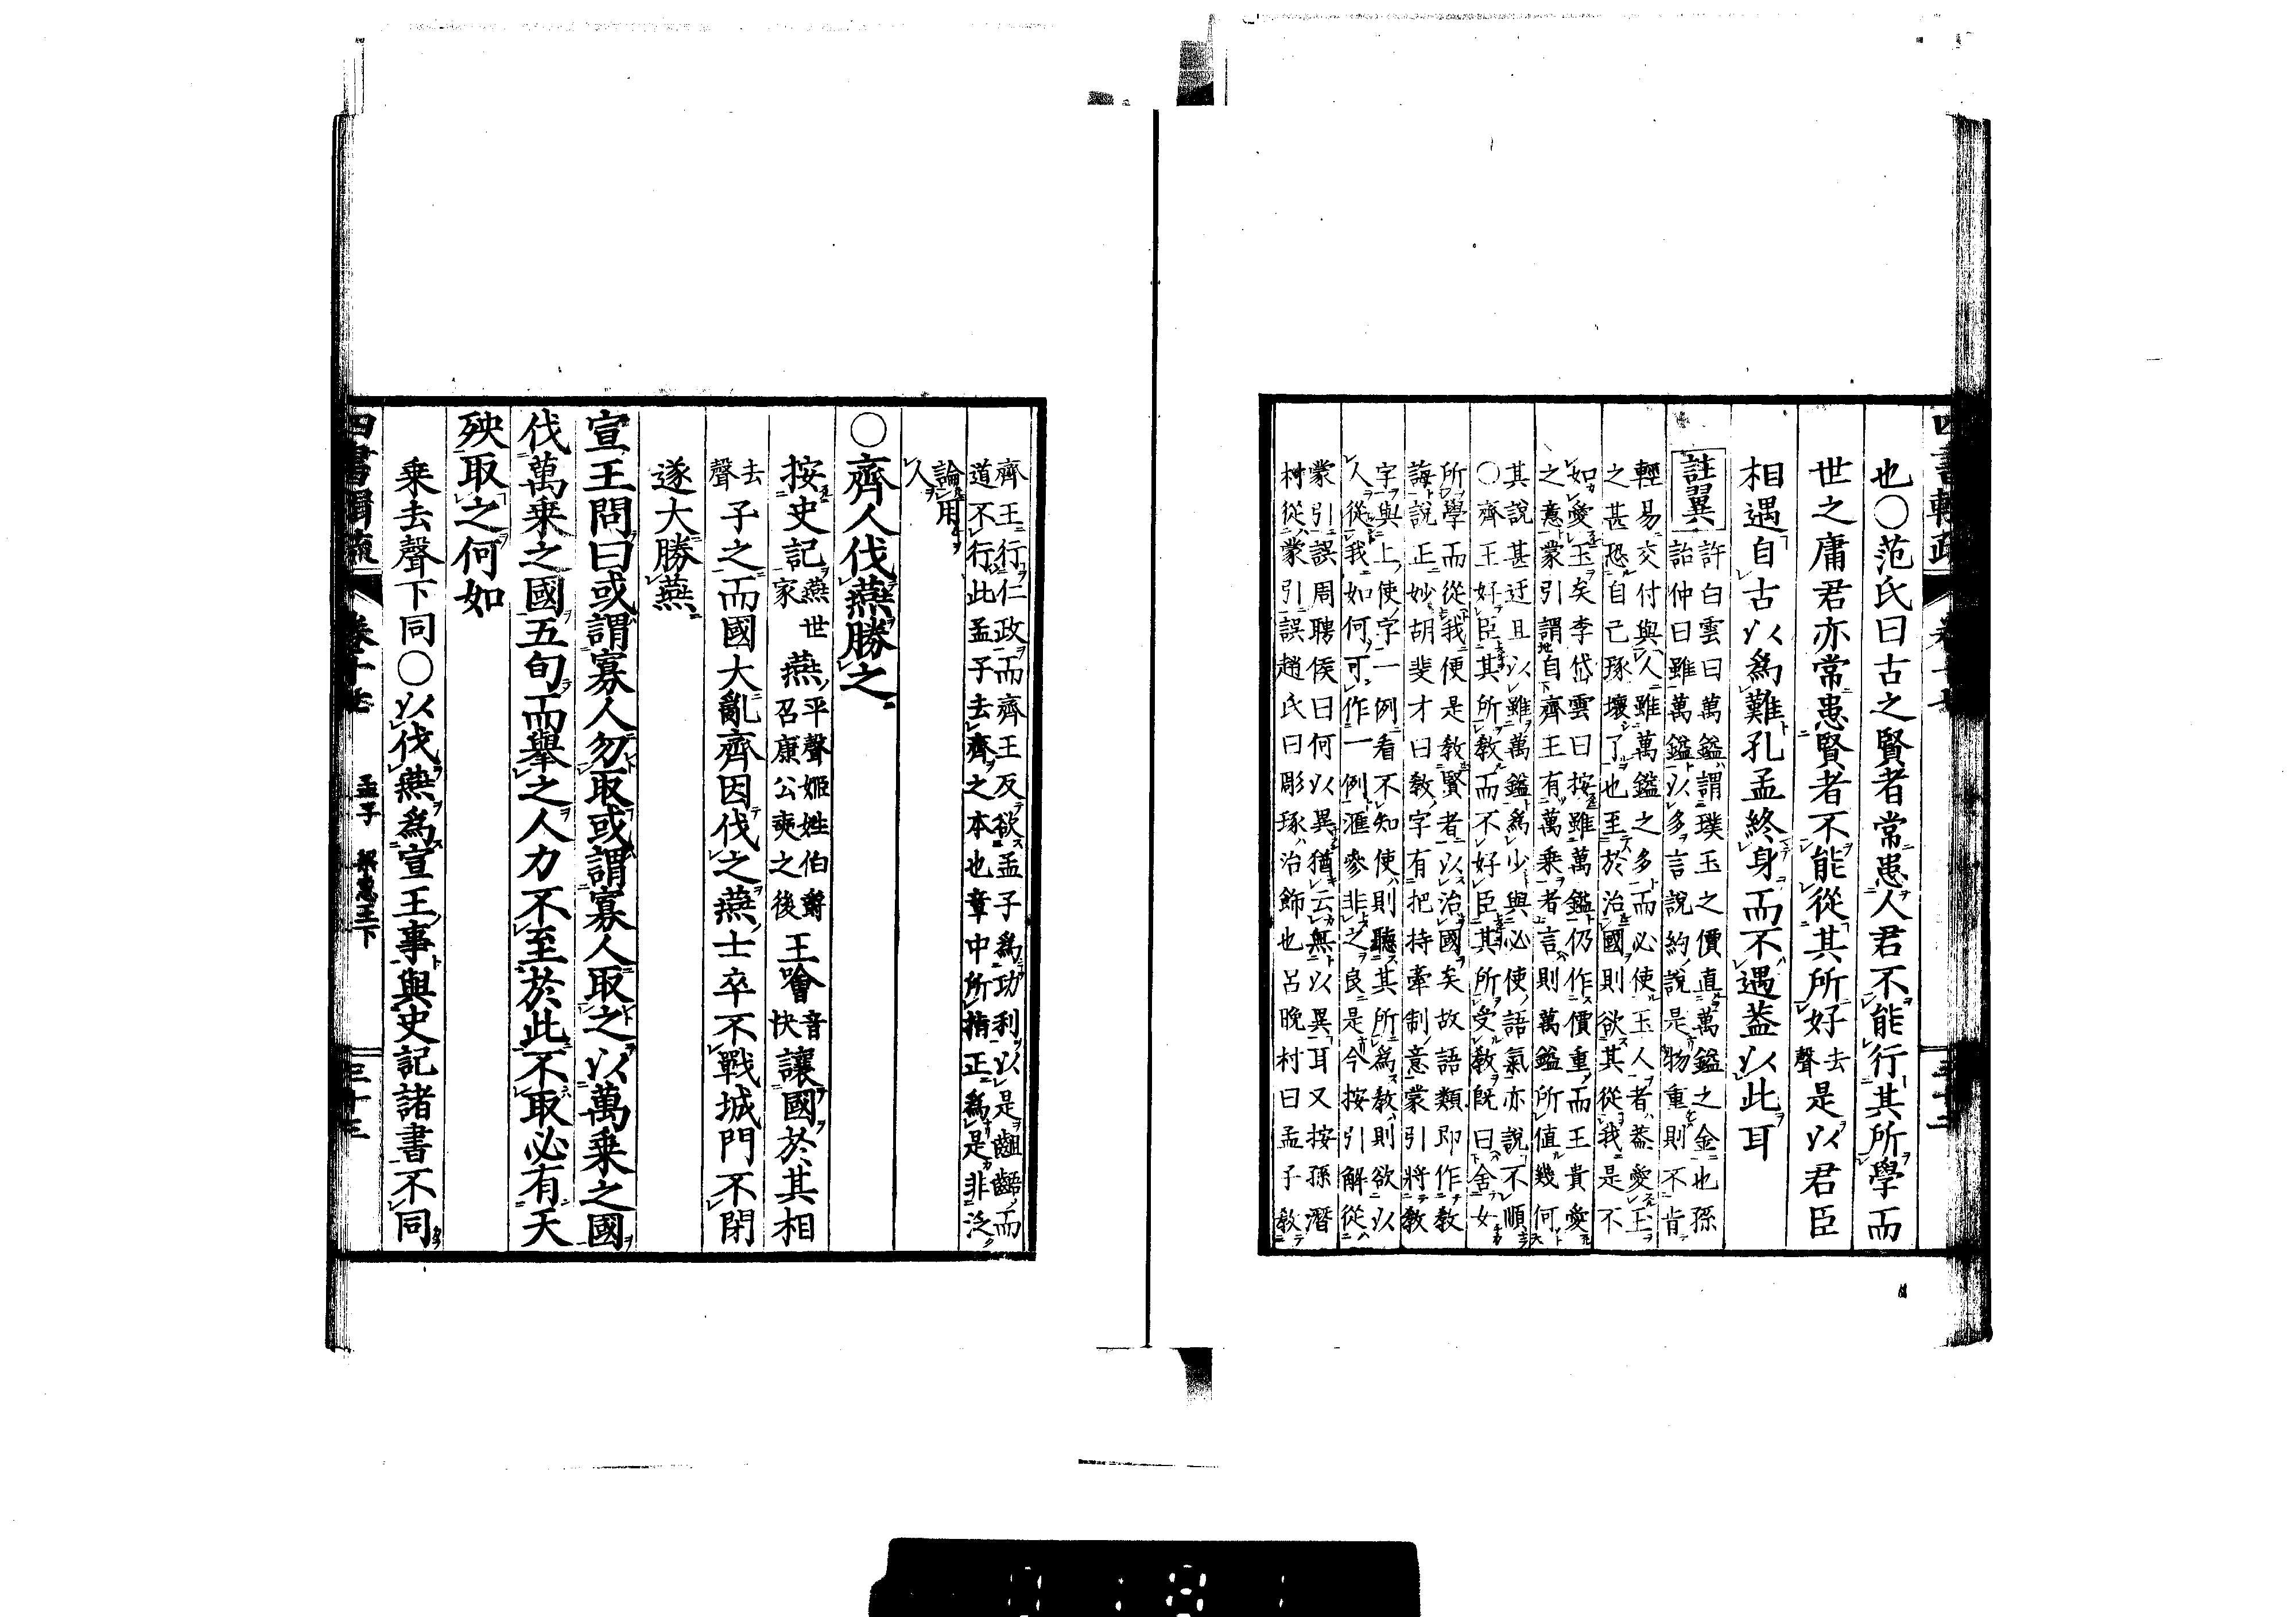 也○范氏曰古之賢者常患人君不能行其所學而
世之庸君亦常患賢者不能從其所好去聲是以君臣
相遇自古以爲難孔孟終身而不遇葢以此耳
註翼
許白雲曰萬鎰謂璞玉之價直萬鎰之金也孫
詒仲曰雖萬鎰以多言說約說是物重則不肯
輕易交付與人雖萬鎰之多而必使玉人者葢愛玉
之甚恐自己琢壞了也至於治國則欲其從我是不
如愛玉矣李岱雲曰按雖萬鎰仍作價重而王貴愛
之意蒙引謂自齊王有萬乘者言則萬鎰所值幾何
其說甚迂且以雖萬鎰爲少與必使語氣亦說不順
○齊王好臣其所教而不好臣其所受教旣曰舍女
所學而從我便是教賢者以治國矣故語類即作教
誨說正妙胡斐才曰教字有把持牽制意蒙引將教
字與上使字一例看不知使則聽其所爲教則欲以
人從我如何可作一例滙參非之良是今按引解從
蒙引誤周聘侯曰何以異猶云無以異耳又按孫潛
村從蒙引誤趙氏曰彫琢治飾也呂晚村曰孟子教
齊王行仁政而齊王反欲孟子爲功利以是齟齬而
道不行此孟子去齊之本也章中所指正爲是非泛
論用
人
○齊人伐燕勝之
按史記燕世家燕平聲姬姓伯爵召康公奭之後王噲音快讓國於其相
去聲子之而國大亂齊因伐之燕士卒不戰城門不閉
遂大勝燕
宣王問曰或謂寡人勿取或謂寡人取之以萬乘之國
伐萬乘之國五旬而舉之人力不至於此不取必有天
殃取之何如
乘去聲下同○以伐燕爲宣王事與史記諸書不同
孟子 梁惠王下
三十三